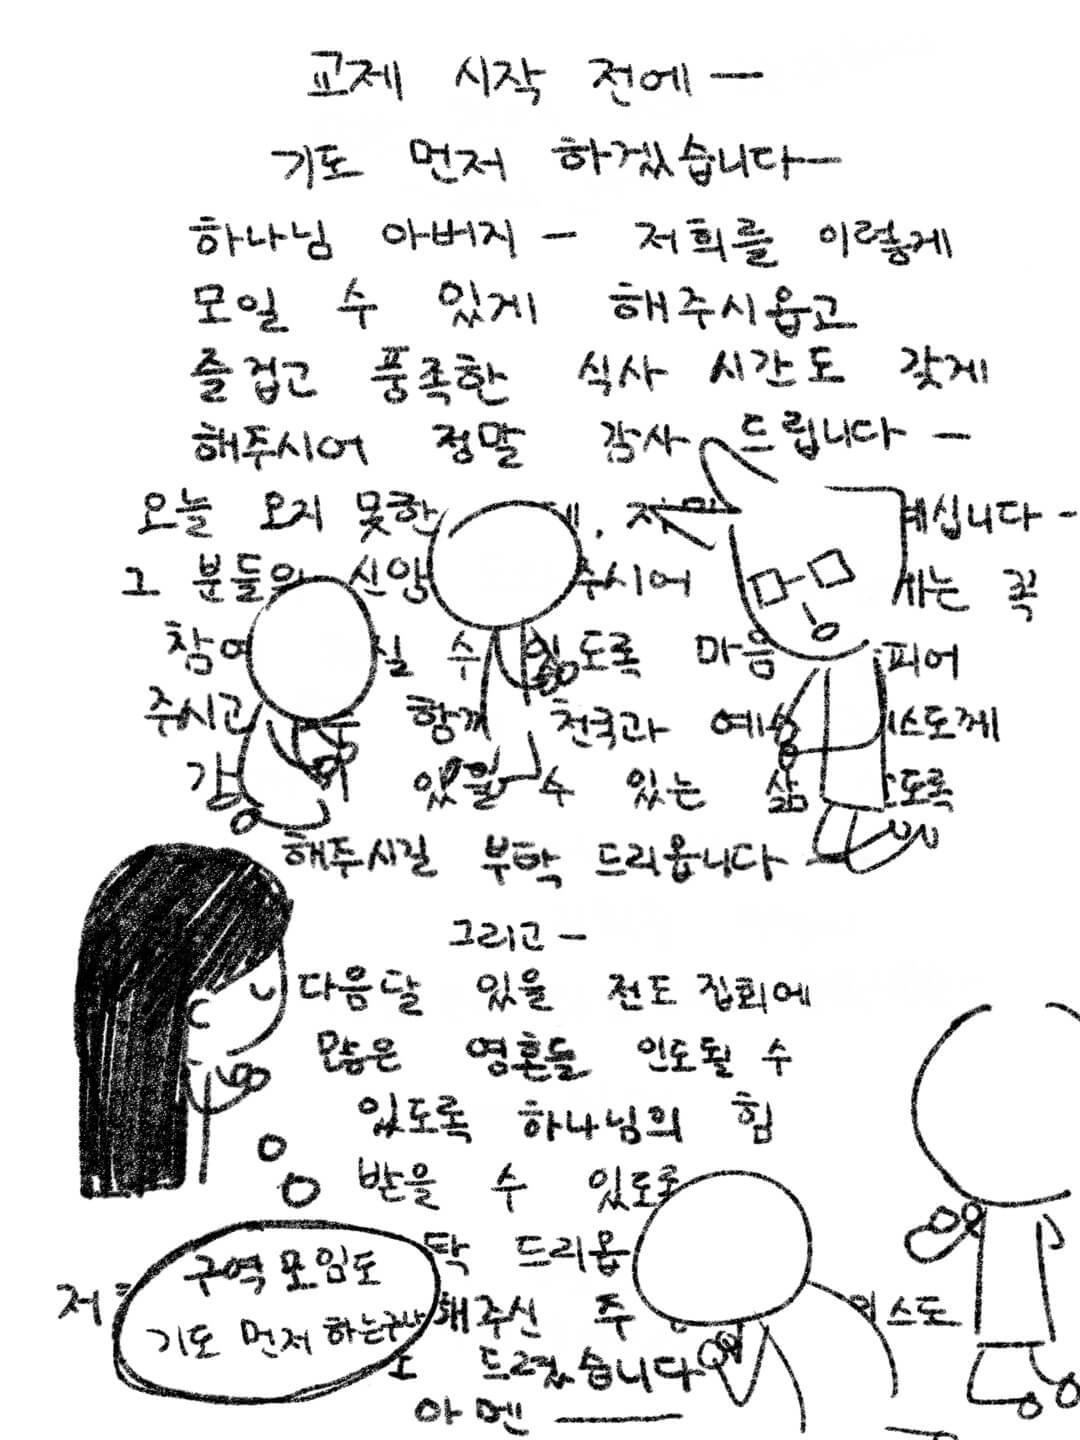 교제 시작 전에ㅡ
기도 먼저 하겠습니다ㅡ
하나님 아버지ㅡ 저희를 이렇게
모일 수 있게 해주시옵고
즐겁고 풍족한 식사 시간도 갖게
해주시어 정말 감사 드립니다ㅡ
오늘 오지 못한 계십니다ㅡ
그 분들의 신앙 주시어 꼭
수 있도록 마음
주시고 함께 천국과
있을 수 있는 삶
해주시길 부탁 드리옵니다ㅡ
그리고ㅡ
다음달 있을 전도 집회에
많은 영혼들 인도될 수
있도록 하나님의 힘
받을 수 있도록
드리옵
해주신 주
드렸습니다
아멘ㅡ
구역 모임도
기도 먼저 하는구나